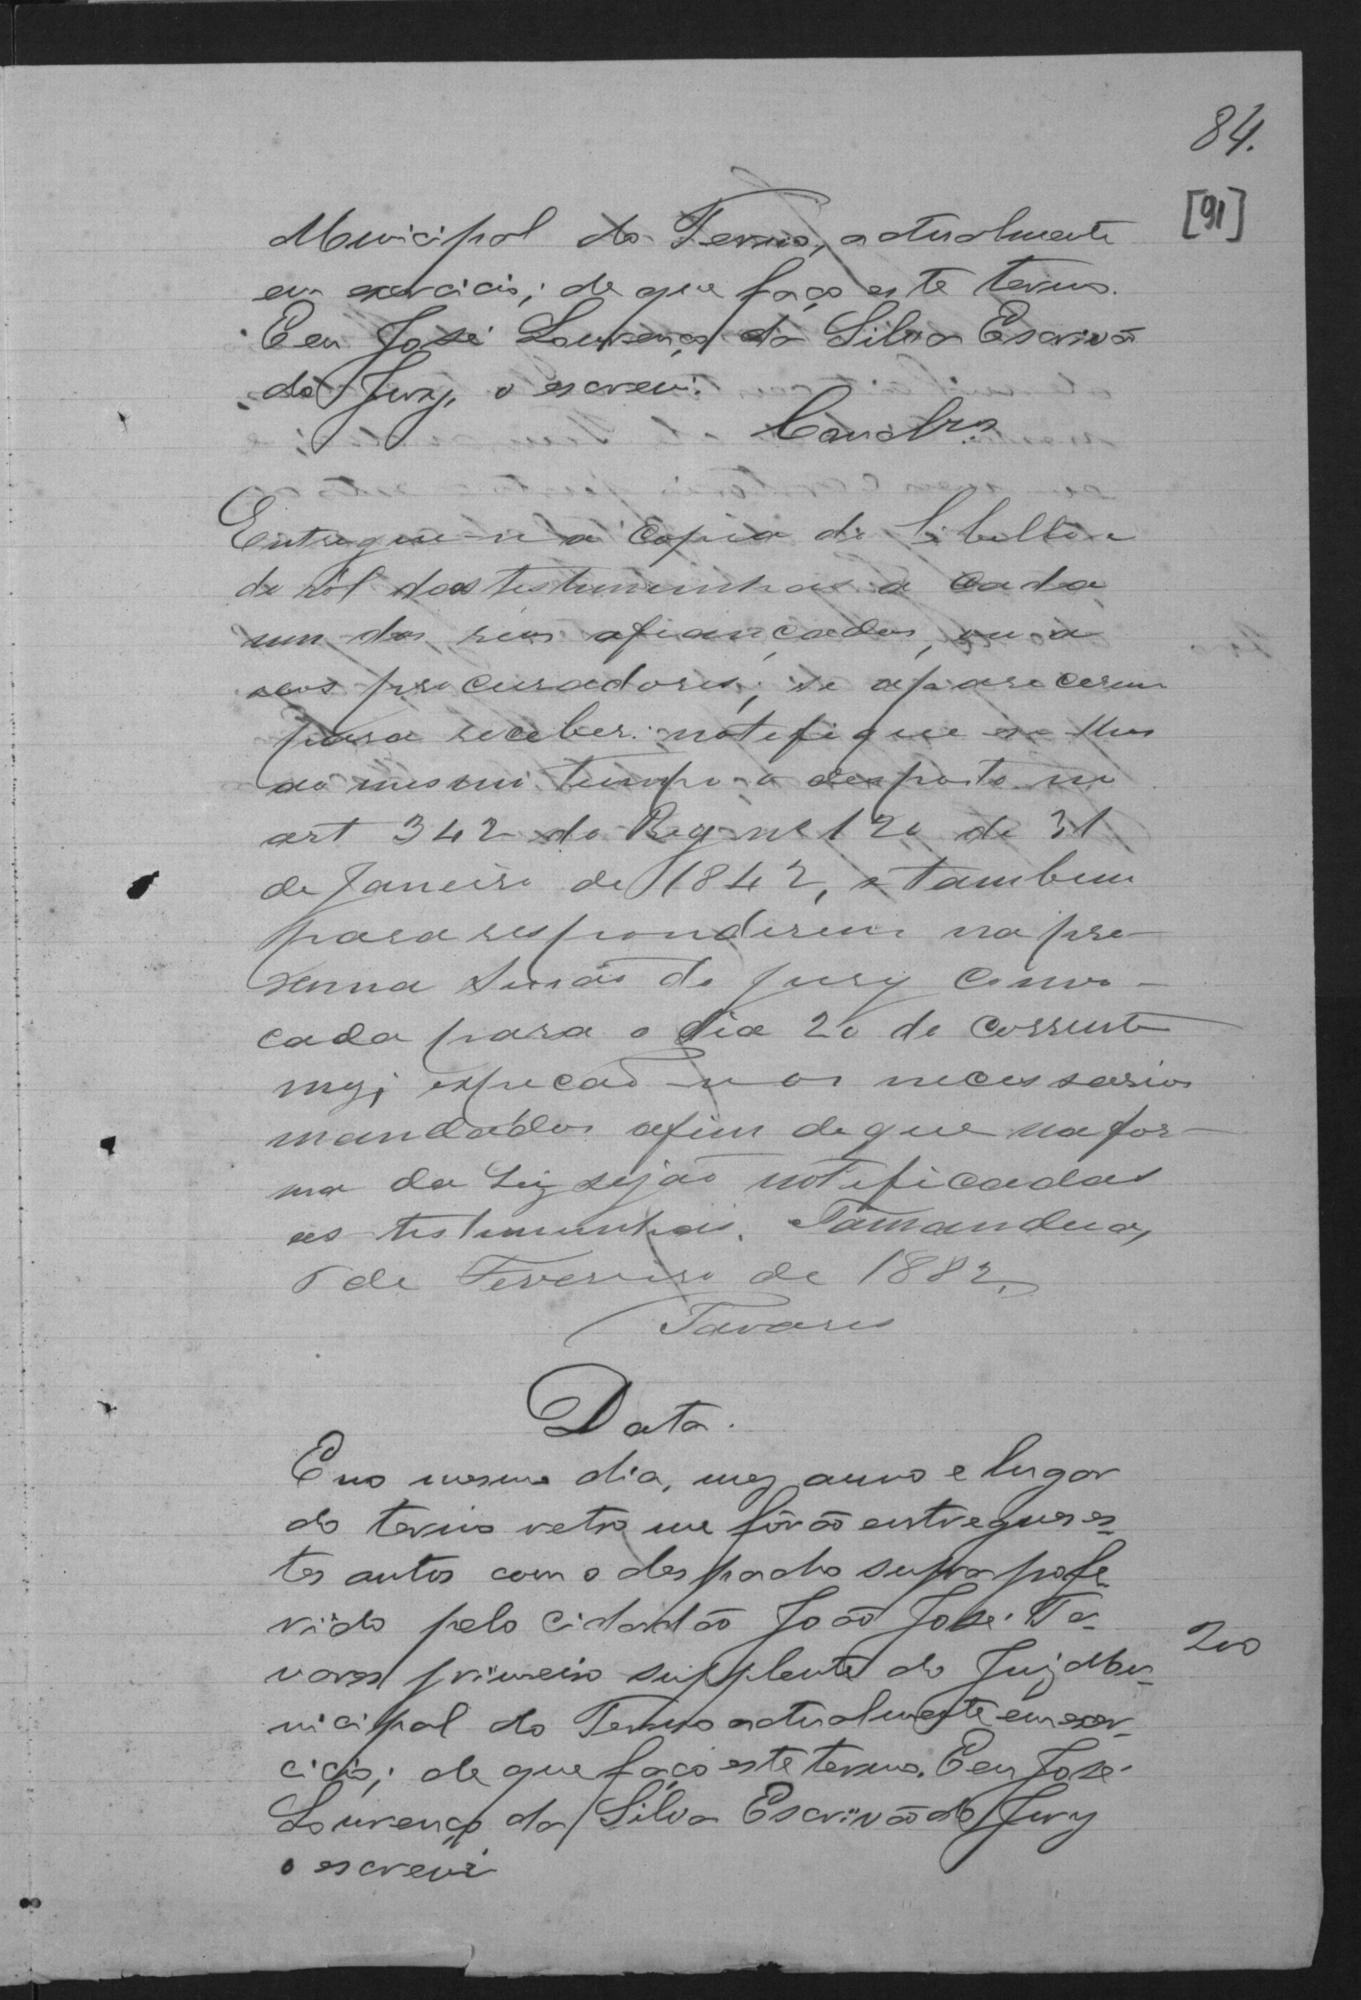 84.
[91]
Municipal do Termo, actualmente
em exercicio; de que faço este termo.
E eu José Lourenço da Silva Escrivão
do Jury, o escrevi.
Conclos
Entregue-se a copia do libello e
do rol das testemunhas a cada
um dos réus afiançados, ou a
seus procuradores, se aparecerem
para receber: notifique-se-lhes
ao mesmo tempo o desposto no
art 342 do Reg nº 120 de 31
de Janeiro de 1842, e tambem
para responderem na pro-
xima sessão do jury convo-
cada para o dia 20 do corrente
mez; expeção-se os necessarios
mandados afim de que na for-
ma da Lei sejão notificadas
as testemunhas. Tamandua,
6 de Fevereiro de 1882.
Tavares
Data.
E no mesmo dia, mez anno e lugar
do termo retro me forão entregues es-
tes autos com o despacho supra pofe-
rido pelo cidadão João José Ta-
vares primeiro supplente do Juiz Mu-
nicipal do Termo actualmente em exer-
cicio; de que faço este termo. E eu José
Lourenço da Silva Escrivão do Jury
o escrevi
200